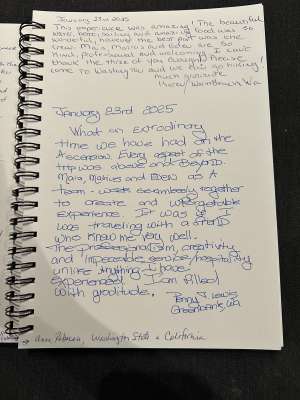 January 23rd 2025
This experience was amazing! The beautiful
water, boat, sailing and amazing food was so
wonderful, however the best part was the
crew. Maia, Matias and Eden are so
kind, professional and welcoming. I can't
thank the three of you enough! Please
come to Washington and we can go hiking!
much gratitude
January 23rd 2025
What an extrodinary
time we have had on the
Ascension. Every aspect of the
trip was above and Beyond.
Maia, Matias and Eden as a
Team - work seamlessly together
to create and unforgetable
experience. It was as if I
was traveling with a friend
who knew me very well.
The professionalism, creativity
and impeccable service/hospitality
unlike anything I have
experienced. I am filled
with gratitude.
Lewis
Greenbank, WA
Washington State & California